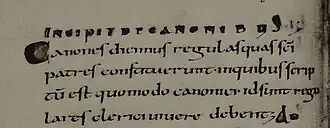 INCIPITDECANONIBUS
Canones dicimus regulas quas sci
patres constituerunt inquibus scrip
tu est quomodo canonici id sunt regu
lares clerici vivere debent